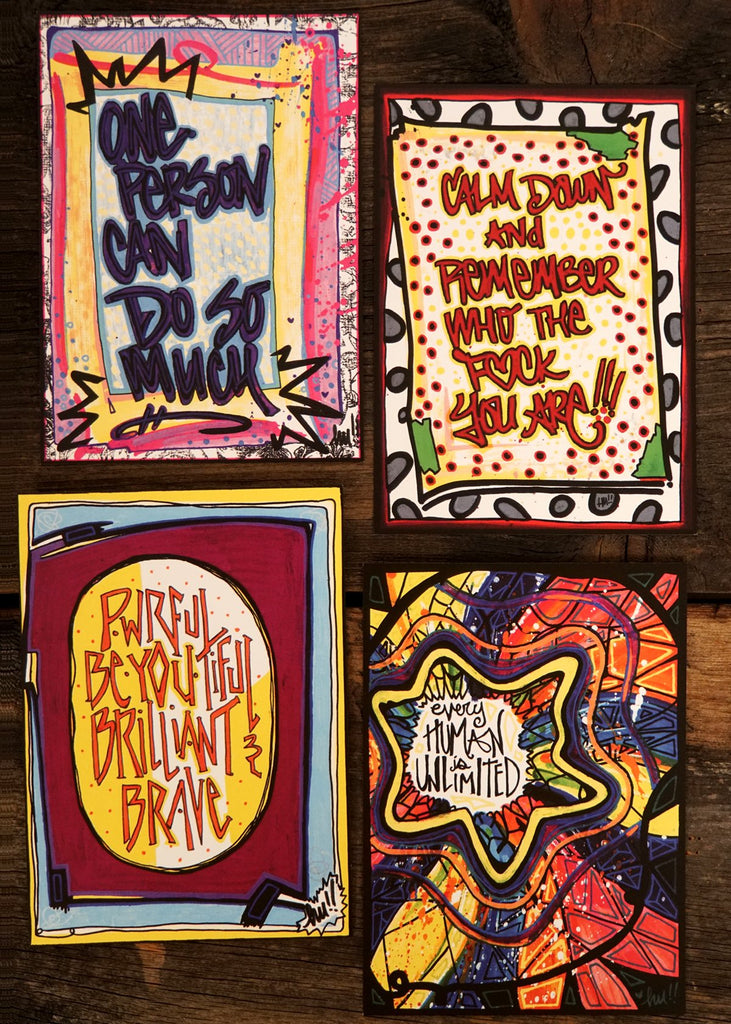 ONE
PERSON
CAN
DO SO
MUCH
CALM DOWN
AND
REMEMBER
WHO THE
FOCK
YOU ARE!!!
P.WRFUL
BE·YOU·TiFUL
BRiLLiANT &
BRAVE
every
HUMAN
is
UNLIMITED